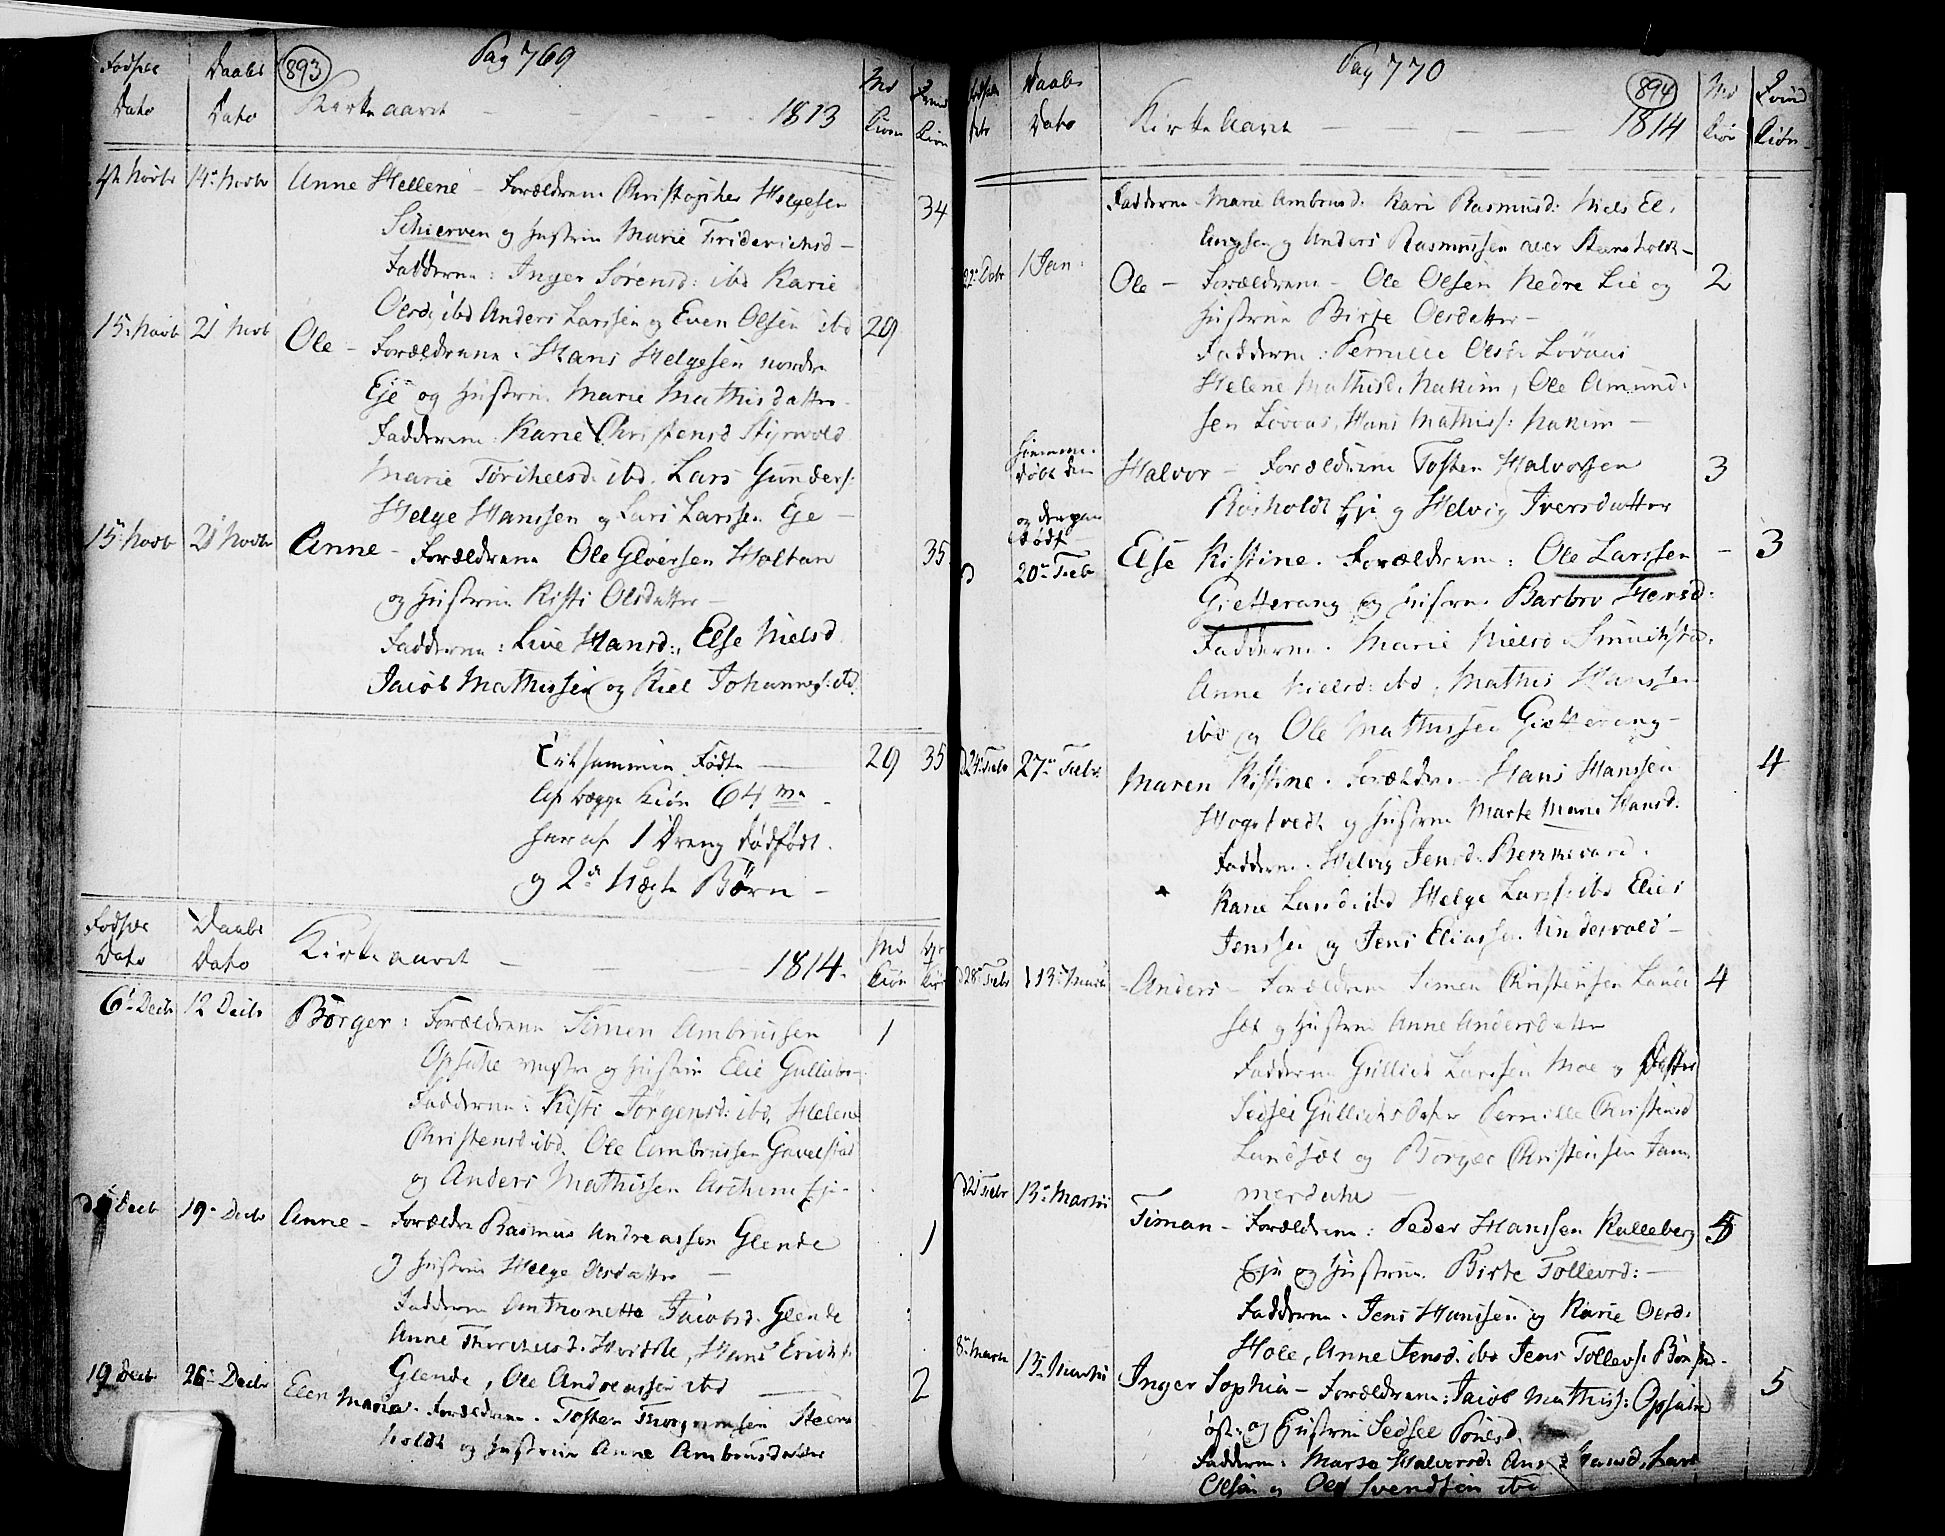 Pag 769
893
Fødsels Daabs
Dato Dato Kirke aaret - - - 1813 Md Kiøn Kiøn
14de Novbr Anne Hellene - Forældrene Christopher Helgesen 34
Schierven og hustrue Marie Friderichsd -
Fadderne: Inger Sørensd: ibd Karie
Olsd: ibd Anders Larssen og Even Olsen ibd
15 Novb 21 Novb Ole - Forældrene: Hans Helgesen nordre 29
Eje og hustrue Marie Mathisdatter -
Fadderne: Karie Christensd Stijrvold
Marie Torichelsd: ibd. Lars Gunders:
Helge Hanssen og Lars Larssen Eje -
15 Novb 21 Novbr Anne - Forældrene Ole Gloersen Holtan 35
og hustrue Kisti Olsdatter -
Fadderne: Live Hansd:, Else Nielsd
Jacob Mathissen og Kiel Johannes: ibd
Tilsammen Fødte — 29 35
Af begge Kiøn 64
heraf 1 Dreng dødfødt.
og 2de Uægte Børn -
Fødsels Daabs
Dato Dato Kirke aaret - - - 1814. Md Kiøn
6 Decbr 12 Decbr Børger: Forældrene Simen Ambrussen 1
Opsahe vestre og hustrue Elie Gullichs-
Fadderne: Kisti Jørgensd: ibd, Helene
Christensd ibd. Ole Ambrussen Gavelstad
og Anders Mathissen Aschim Eje -
Decb 19 Decbr Anne - Forældre Rasmus Andreassen Glende 1
og hustrue Helge Olsdatter —
Fadderne Anthonette Jacobsd. Glende
Anne Thorchelsd. Hvidste, Hans Erichs:
Glende, Ole Andreassen ibd —
19 Decbr 26 Decbr Elen Maria. Forældrene. Tosten Thorgrimsen Steens 2
holdt og hustrue Anne Ambrusdatter
Pag 770
894
Fødsels Daabs
Dato Dato Kirke Aaret - - - 1814 Md Kiøn Qvind Kiøn
Fadderne Marie Ambrusd: Kari Rasmusd: Niels El-
lingsen og Anders Rasmussen Steensholdt -
22 Debr 1 Jan: Ole - Forældrene - Ole Olsen Nedre Lie og 2
hustrue Birte Olsdatter -
Fadderne: Pernille Olsd: Løvaas
Helene Mathisd. Nakim, Ole Amund-
sen Løvaas, Hans Mathiss: Nakim -
hiemme-
døbt den
og dengang
Dødt
Halvor - Forældrene Tosten Halvorssen 3
Rosholdt Eje og Helvig Iversdatter
20 Febr Else Kistine. Forældrene: Ole Larssen - 3
Gietterang og hustrue Barbro Hansd:
Fadderne. Marie Nielsd
Anne Nielsd: ibd, Mathis Hanssen
ibd og Ole Mathissen Gietterang -
d 24 Febr 27 Febr: Maren Kistine. Forældre - Hans Hanssen 4
Hogstvedt og hustrue Marte Marie Hansd.
Fadderne. Helvig Jensd:
Karie Larsd: ibd Helge Larss: ibd Elias
Jenssen og Jens Eliassen Undervold -
d 28 Febr 13 Marti Anders - Forældrene Simen Christensen Lund- 4
sæt og hustrue Anne Andersdatter
Fadderne Gullich Larssen Moe og
Sidsei Gullichsdater Pernille Christensd
Lundsæt og Børger Christensen Jam-
merdahl -
d 21 Febr 13 Martii Timan - Forældrene: Peder Hanssen Kalleberg 5
Eje og hustrue Birte Tollevsd: -
Fadderne. Jens Hanssen og Karie Olsd:
Hole, Anne Jensd. ibd Jens Tollevs:
8 Marts 13 Martii Inger Sophia - Forældrene: Jacob Mathiss: Opsahe 5
øst: og Hustrue Sidsel Povelsd.
Fadderne: Marta Halvorsd. Hansd, Lars
Olsen og Ole Svendsen ibd